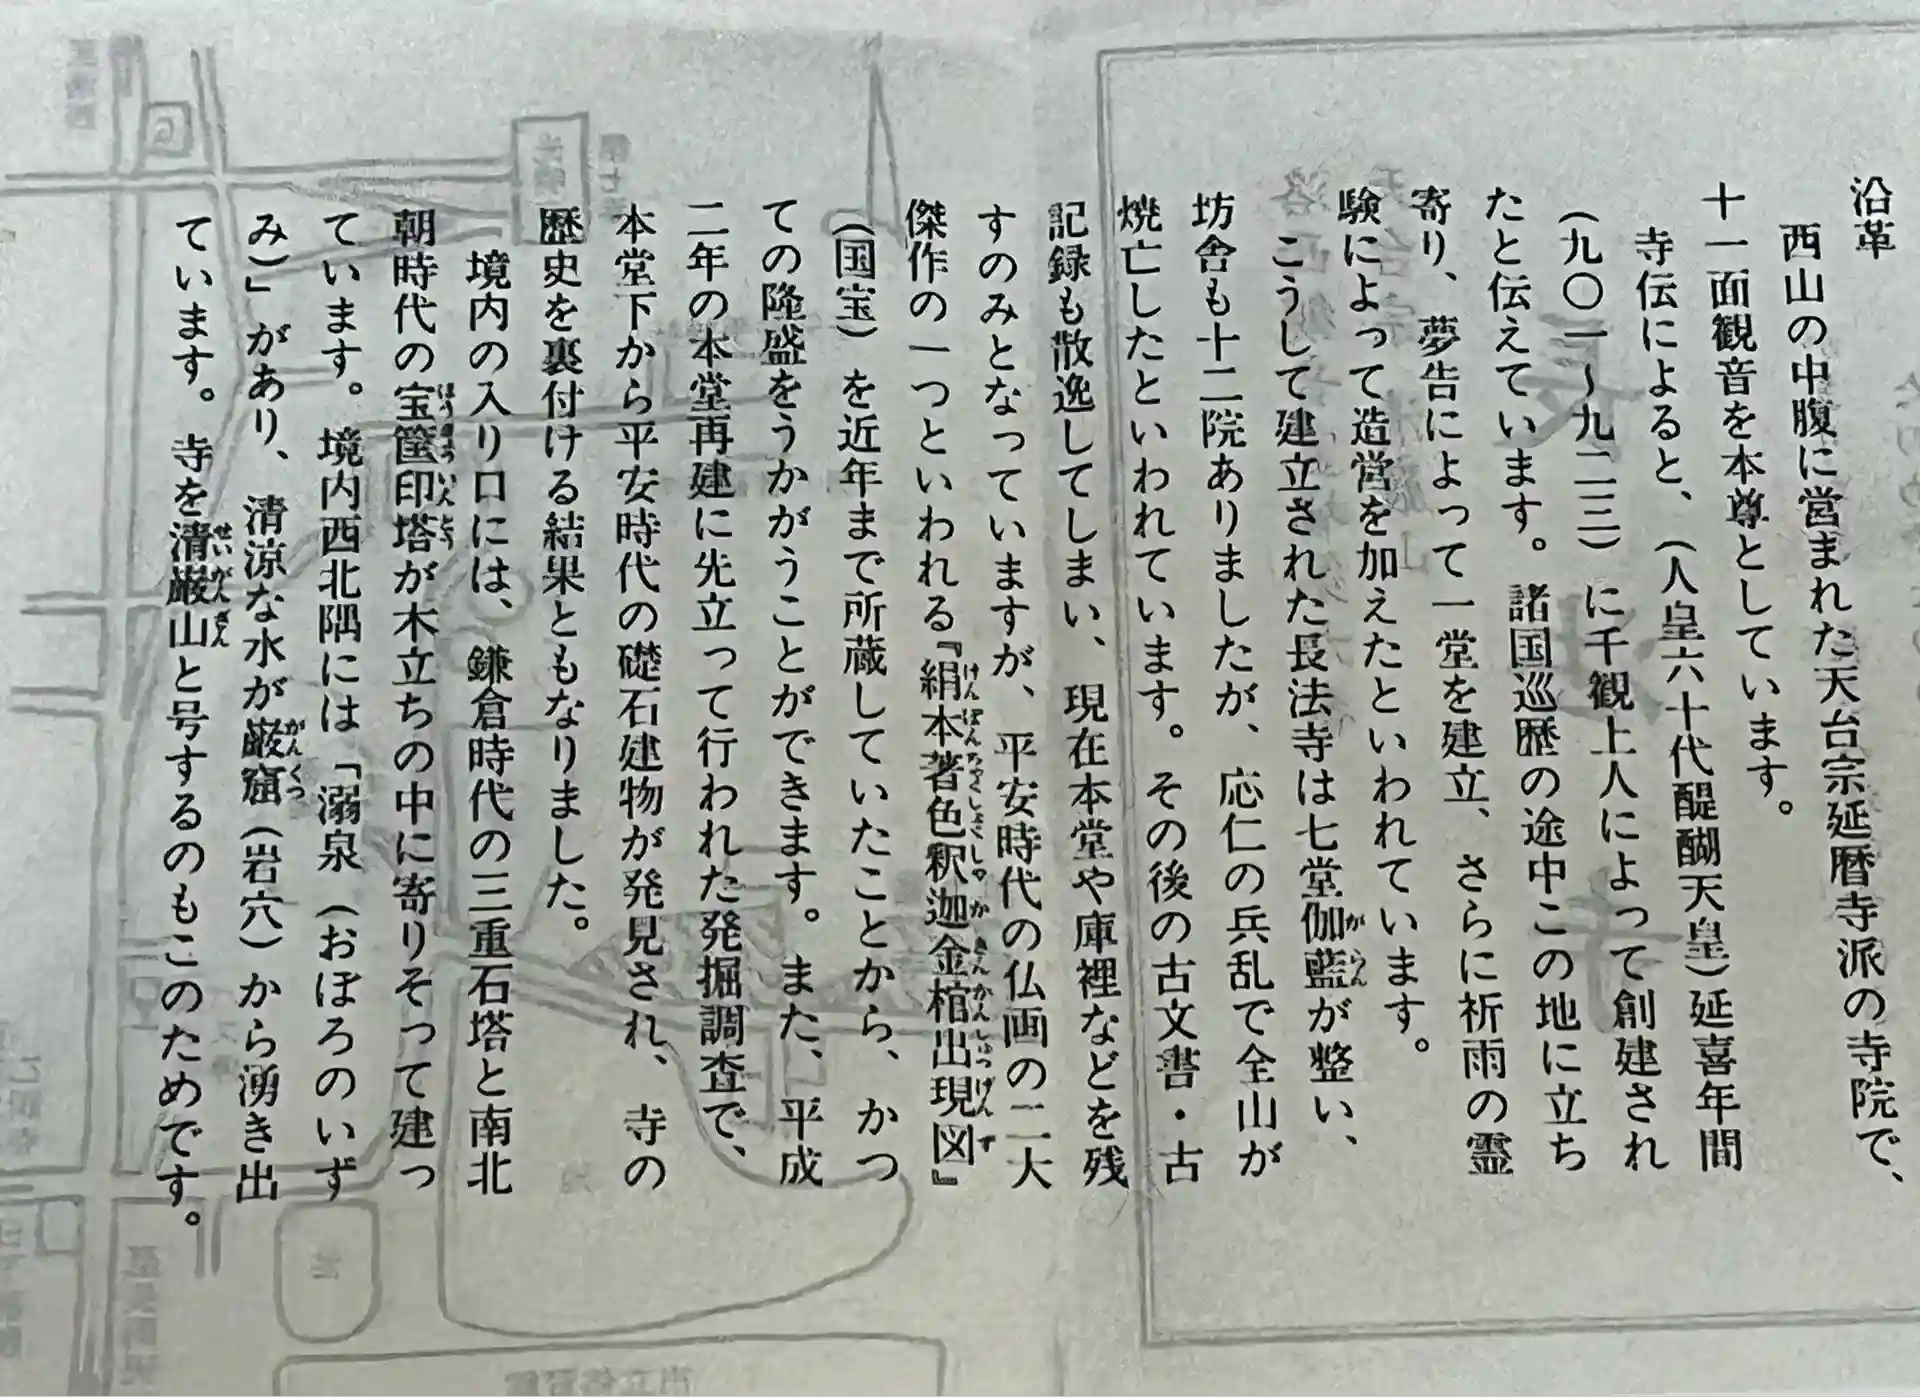 沿革
西山の中腹に営まれた天台宗延暦寺派の寺院で、
十一面観音を本尊としています。
寺伝によると、(人皇六十代醍醐天皇)延喜年間
(九〇一〜九二三)に千観上人によって創建され
たと伝えています。諸国巡歴の途中この地に立ち
寄り、夢告によって一堂を建立、さらに祈雨の霊
験によって造営を加えたといわれています。
こうして建立された長法寺は七堂伽藍が整い、
坊舎も十二院ありましたが、応仁の兵乱で全山が
焼亡したといわれています。その後の古文書・古
記録も散逸してしまい、現在本堂や庫裡などを残
すのみとなっていますが、平安時代の仏画の二大
傑作の一つといわれる『絹本著色釈迦金棺出現図』
(国宝)を近年まで所蔵していたことから、かつ
ての隆盛をうかがうことができます。また、平成
二年の本堂再建に先立って行われた発掘調査で、
本堂下から平安時代の礎石建物が発見され、寺の
歴史を裏付ける結果ともなりました。
境内の入り口には、鎌倉時代の三重石塔と南北
朝時代の宝篋印塔が木立ちの中に寄りそって建っ
ています。境内西北隅には「溺泉(おぼろのいず
み)」があり、清涼な水が巌窟(岩穴)から湧き出
ています。寺を清巌山と号するのもこのためです。